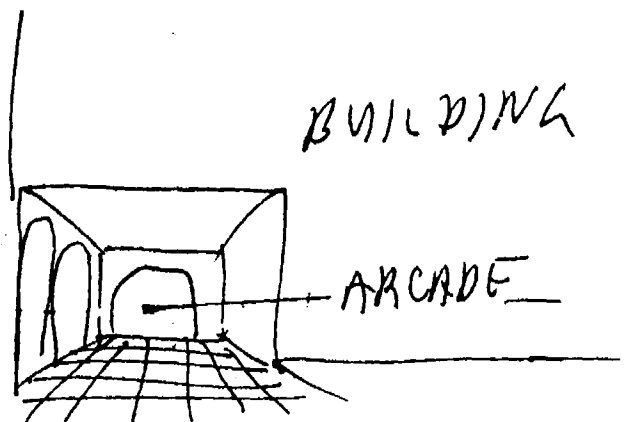 BUILDING
ARCADE